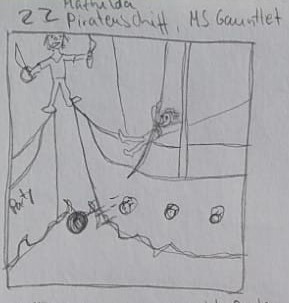 22 Mathilda
Piratenschiff, MS Gauntlet
Party